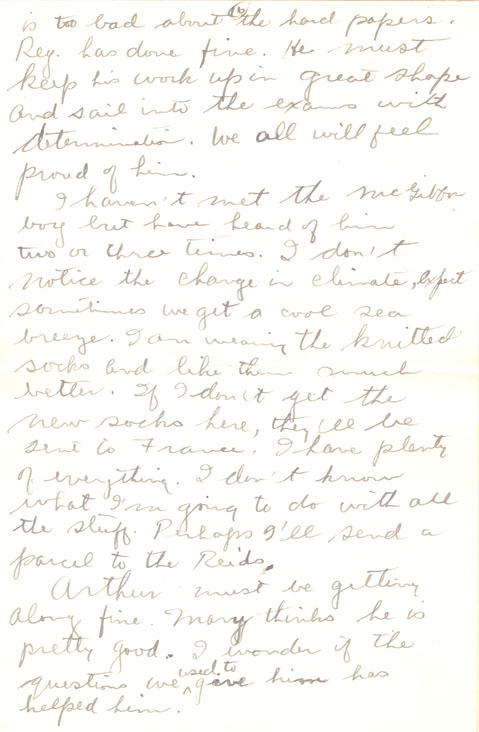 (6)
is too bad about the hard papers.
Reg. has done fine. He must
keep his work up in great shape
and sail into the exams with
determination. We all will feel
proud of him.
I haven't met the McGibbon
boy but have heard of him
two or three times. I don't
notice the change in climate, expect
sometimes we get a cool sea
breeze. I am wearing the knitted
socks and like them much
better. If I don't get the
new socks here, they'll be
sent to France. I have plenty
of everything. I don't know
what I'm going to do with all
the stuff. Perhaps I'll send a
parcel to the Reids.
Arthur must be getting
along fine. Mary thinks he is
pretty good. I wonder if the
questions we used to give him has
helped him.